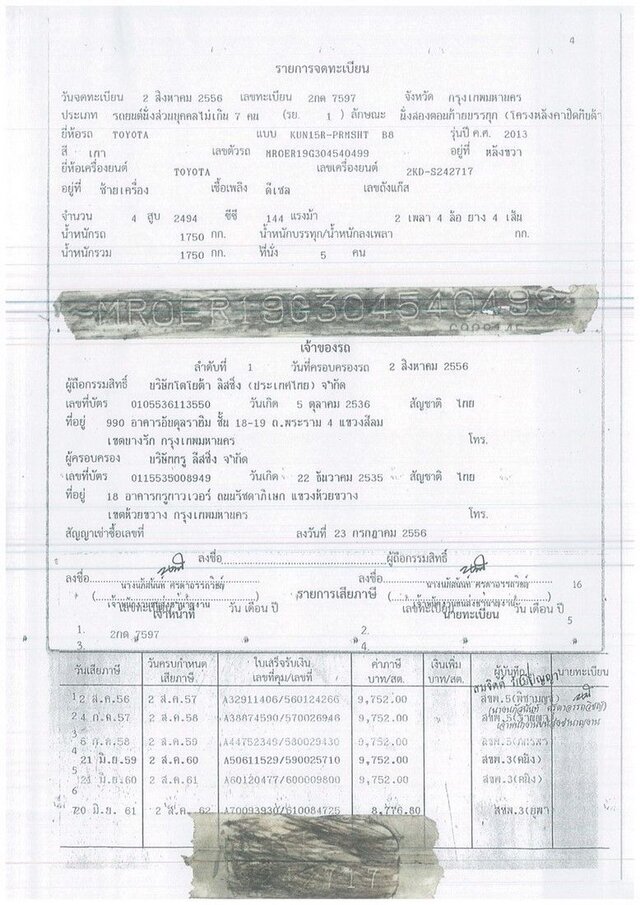 4
รายการจดทะเบียน
วันจดทะเบียน 2 สิงหาคม 2556 เลขทะเบียน 2กด 7597 จังหวัด กรุงเทพมหานคร
ประเภท รถยนต์นั่งส่วนบุคคลไม่เกิน 7 คน (รย. 1 ) ลักษณะ นั่งสองตอนท้ายบรรทุก (โครงหลังคาปิดทึบด้า
ยี่ห้อรถ TOYOTA แบบ KUN15R-PRMSHT B8 รุ่นปี ค.ศ. 2013
สี เทา เลขตัวรถ MROER19G304540499 อยู่ที่ หลังขวา
ยี่ห้อเครื่องยนต์ TOYOTA เลขเครื่องยนต์ 2KD-S242717
อยู่ที่ ซ้ายเครื่อง เชื้อเพลิง ดีเซล เลขถังแก๊ส
จำนวน 4 สูบ 2494 ซีซี 144 แรงม้า 2 เพลา 4 ล้อ ยาง 4 เส้น
น้ำหนักรถ 1750 กก. น้ำหนักบรรทุก/น้ำหนักลงเพลา กก.
น้ำหนักรวม 1750 กก. ที่นั่ง 5 คน
MROER19G304540499
เจ้าของรถ
ลำดับที่ 1 วันที่ครอบครองรถ 2 สิงหาคม 2556
ผู้ถือกรรมสิทธิ์ บริษัทโตโยต้า ลีสซิ่ง (ประเทศไทย) จำกัด
เลขที่บัตร 0105536113550 วันเกิด 5 ตุลาคม 2536 สัญชาติ ไทย
ที่อยู่ 990 อาคารอับดุลราฮิม ชั้น 18-19 ถ.พระราม 4 แขวงสีลม
เขตบางรัก กรุงเทพมหานคร โทร.
ผู้ครอบครอง บริษัทกรู ลีสซิ่ง จำกัด
เลขที่บัตร 0115535008949 วันเกิด 22 ธันวาคม 2535 สัญชาติ ไทย
ที่อยู่ 18 อาคารทรูทาวเวอร์ ถนนรัชดาภิเษก แขวงห้วยขวาง
เขตห้วยขวาง กรุงเทพมหานคร โทร.
สัญญาเช่าซื้อเลขที่ ลงวันที่ 23 กรกฎาคม 2556
ลงชื่อ ผู้ถือกรรมสิทธิ์
ลงชื่อ ลงชื่อ 16
รายการเสียภาษี
เจ้าหน้าที่ วัน เดือน ปี นายทะเบียน วัน เดือน ปี
5
1. 2กด 7597 2.
3. 4.
วันเสียภาษี วันครบกำหนดเสียภาษี ใบเสร็จรับเงิน เลขที่คุม/เลขที่ ค่าภาษี บาท/สต. เงินเพิ่ม บาท/สต. ผู้บันทึก นายทะเบียน
1 2 ส.ค.56 2 ส.ค.57 A32911406/560124266 9,752.00
2 4 ก.ค.57 2 ส.ค.58 A38874590/570026946 9,752.00
6 ก.ค.58 2 ส.ค.59 A44752349/580029430 9,752.00
21 มิ.ย.59 2 ส.ค.60 A50611529/590025710 9,752.00 สขพ.3(คนึง)
21 มิ.ย.60 2 ส.ค.61 A60120477/600009800 9,752.00 สขพ.3(คนึง)
20 มิ.ย. 61 2 ส.ค. 62 A70093930/610084725 8,776.80 สขพ.3(ยุพา